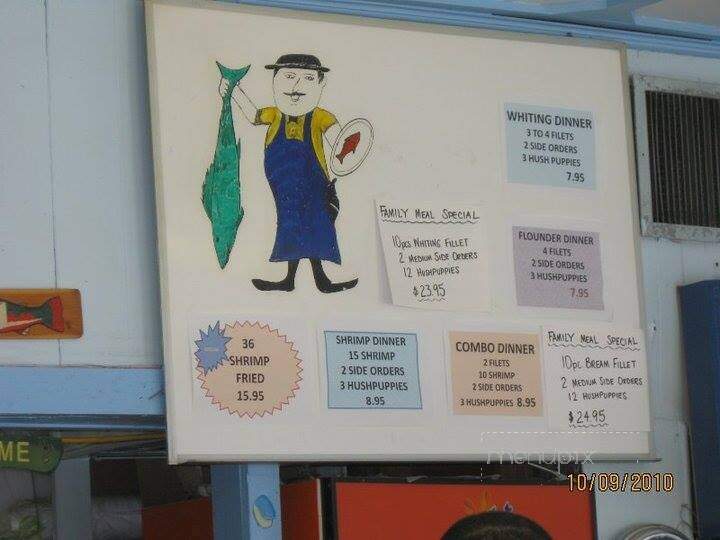 WHITING DINNER
3 TO 4 FILETS
2 SIDE ORDERS
3 HUSH PUPPIES
7.95
FAMILY MEAL SPECIAL
10pcs WHITING FILLET
2 MEDIUM SIDE ORDERS
12 HUSHPUPPIES
$23.95
FLOUNDER DINNER
4 FILETS
2 SIDE ORDERS
3 HUSHPUPPIES
7.95
36
SHRIMP
FRIED
15.95
SHRIMP DINNER
15 SHRIMP
2 SIDE ORDERS
3 HUSHPUPPIES
8.95
COMBO DINNER
2 FILETS
10 SHRIMP
2 SIDE ORDERS
3 HUSHPUPPIES 8.95
FAMILY MEAL SPECIAL
10pc BREAM FILLET
2 MEDIUM SIDE ORDERS
12 HUSHPUPPIES
$24.95
ME
menupix
10/09/2010